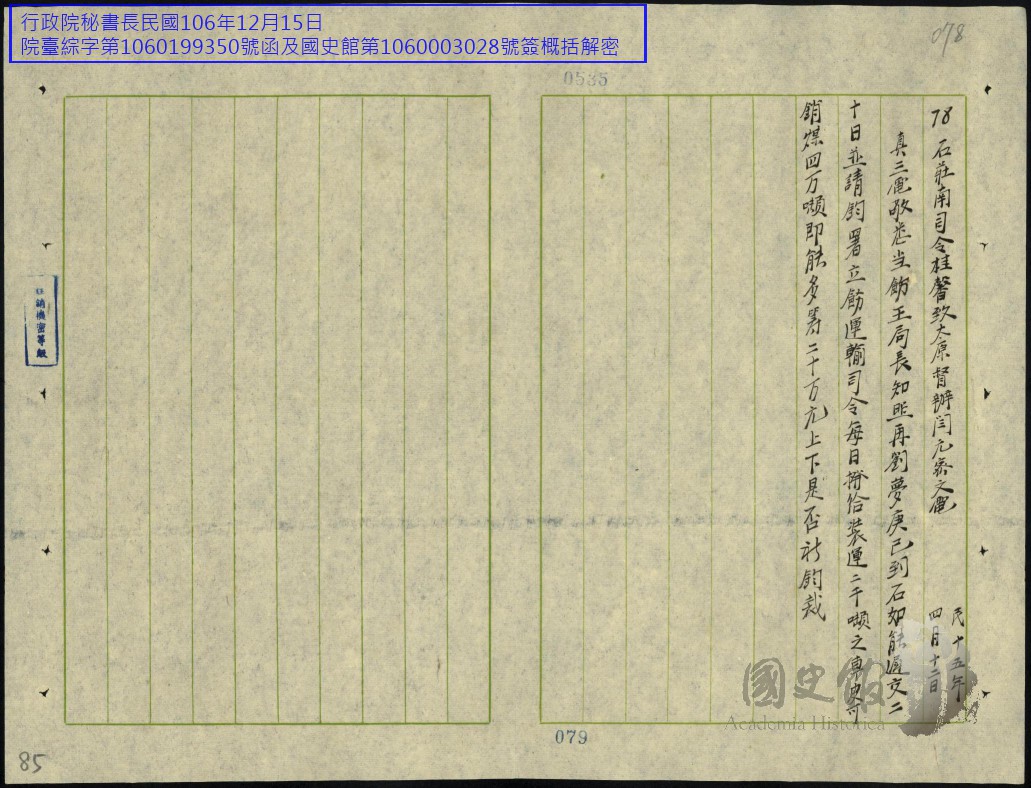 行政院秘書長民國106年12月15日
院臺綜字第1060199350號函及國史館第1060003028號簽概括解密
078
0535
78 石莊南司令桂馨致太原督辦閻元密文電
民十五年
四月十二日
真三電敬悉当飭王局長知照再劉夢庚已到石如能通交二
十日並請鈞署立飭運輸司令每日撥佮裝運二千噸之車皮可
銷煤四万噸即能多筹二十万元上下是否祈鈞裁
註銷機密等級
國史館
Academia Historica
079
85